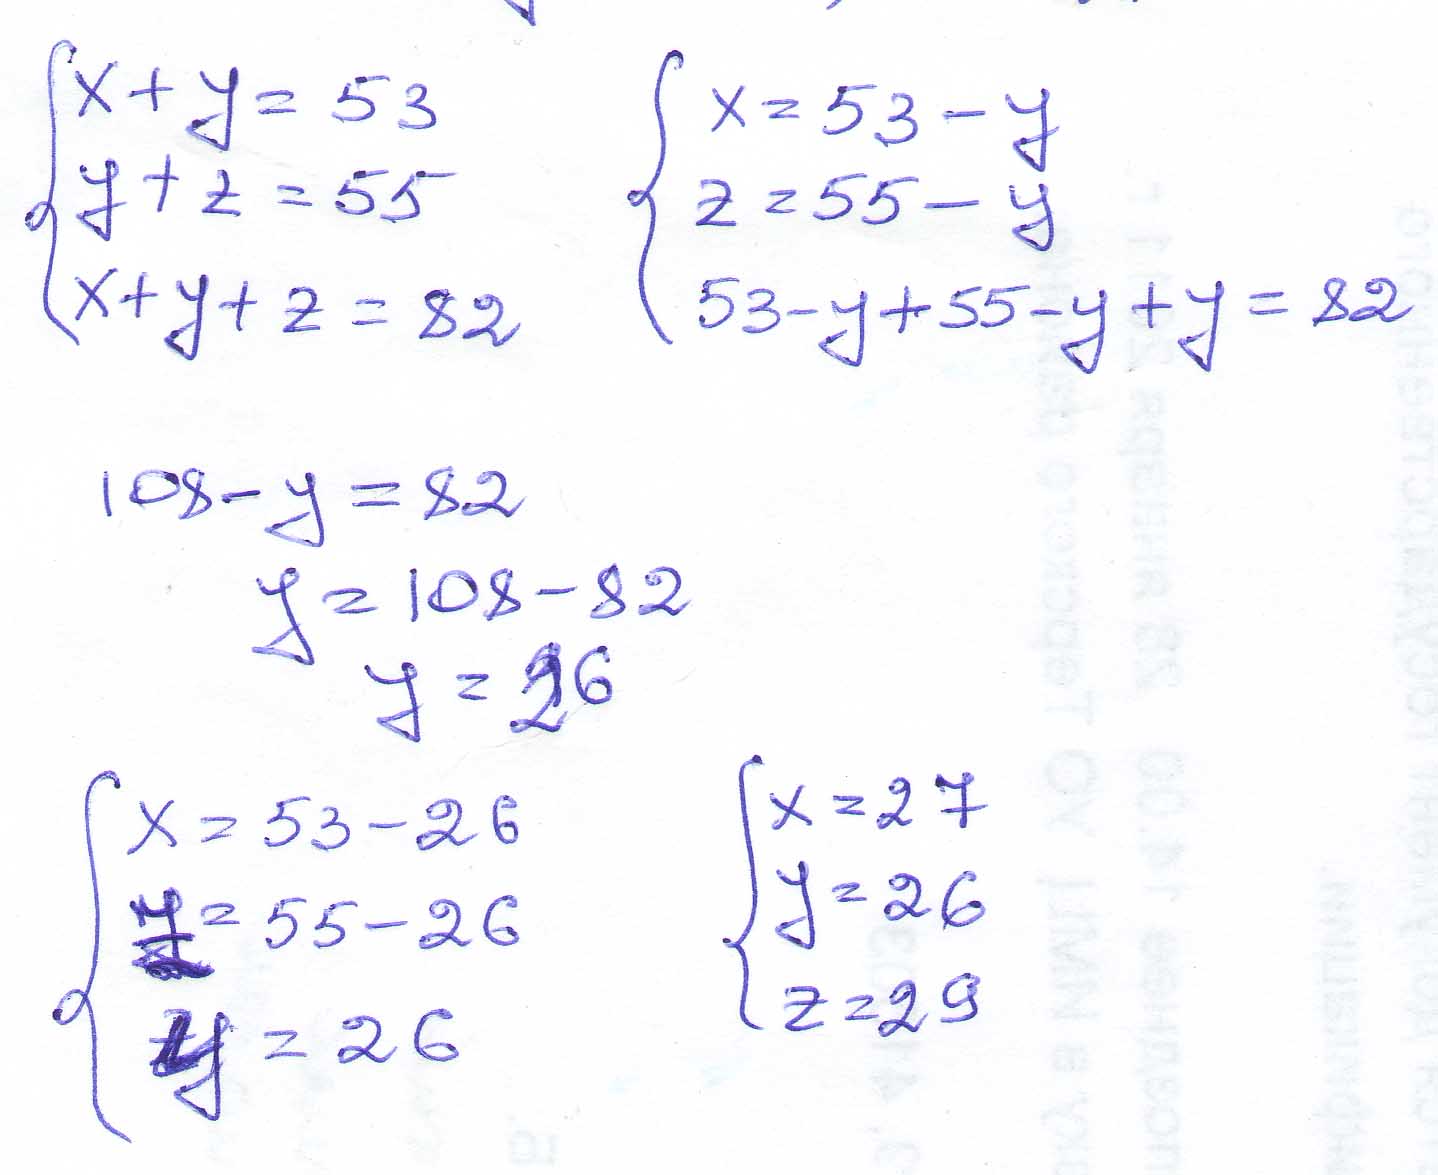 x+y=53
y+z=55
x+y+z=82
x=53-y
z=55-y
53-y+55-y+y=82
108-y=82
y=108-82
y=26
x=53-26
z=55-26
y=26
x=27
y=26
z=29